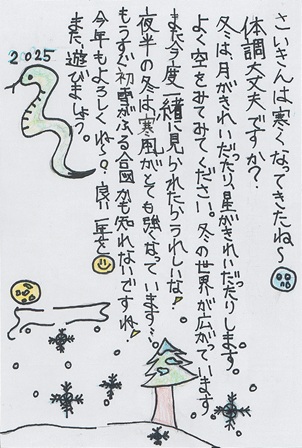 さいきんは寒くなってきたね〜
体調大丈夫ですか?
冬は月がきれいだったり、星がきれいだったりします。
よく空をみてみてください。冬の世界が広がっています
また今度一緒に見られたらうれしいな!
夜半の冬は寒風がとても強なっています…
もうすぐ初雪がふる合図かも知れないですね!
今年もよろしくね〜? 良い年を
また、遊びましょう。
2025